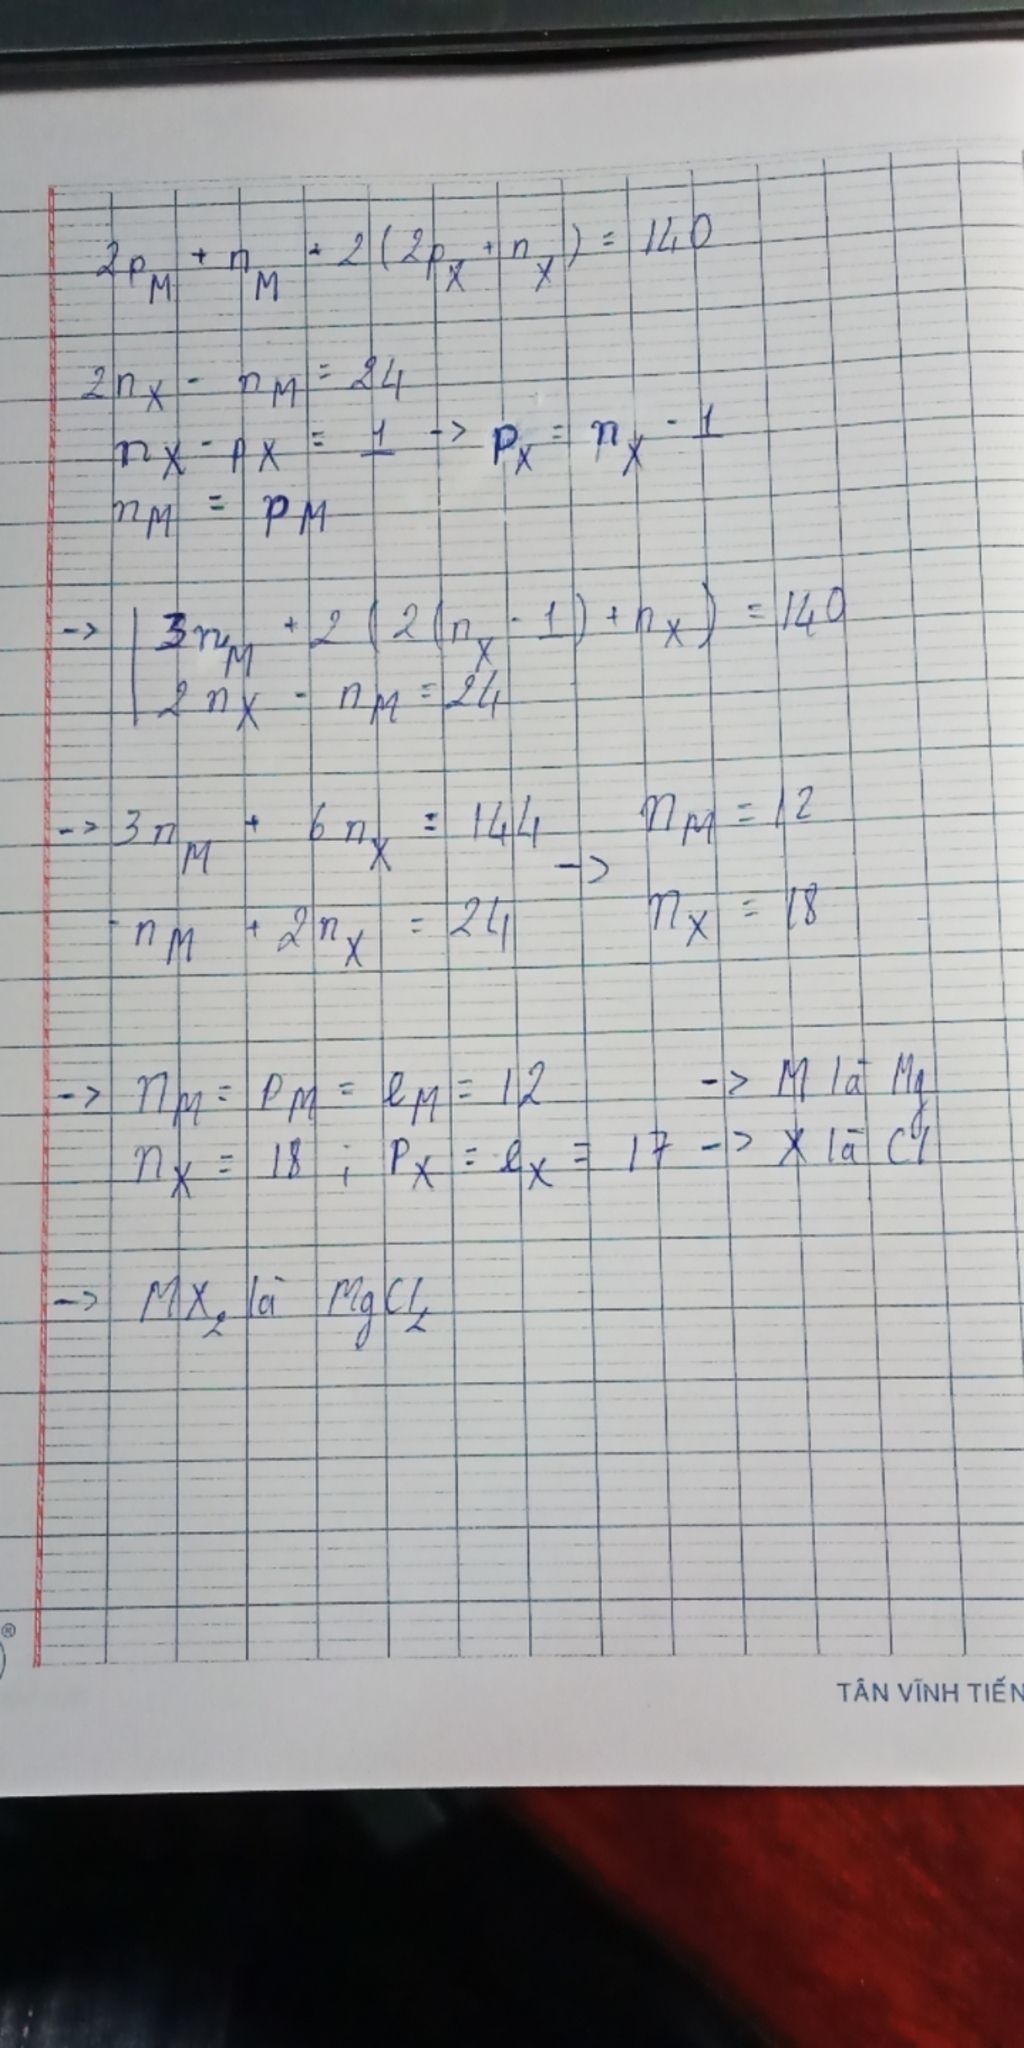 2p_M + n_M + 2(2p_X + n_X) = 140
2n_X - n_M = 24
n_X - p_X = 1 -> p_X = n_X - 1
n_M = p_M
-> | 3n_M + 2(2(n_X - 1) + n_X) = 140
2n_X - n_M = 24
-> 3n_M + 6n_X = 144 -> n_M = 12
-n_M + 2n_X = 24 n_X = 18
-> n_M = p_M = e_M = 12 -> M là Mg
n_X = 18 ; p_X = e_X = 17 -> X là Cl
-> MX_2 là MgCl_2
®
TÂN VĨNH TIẾN